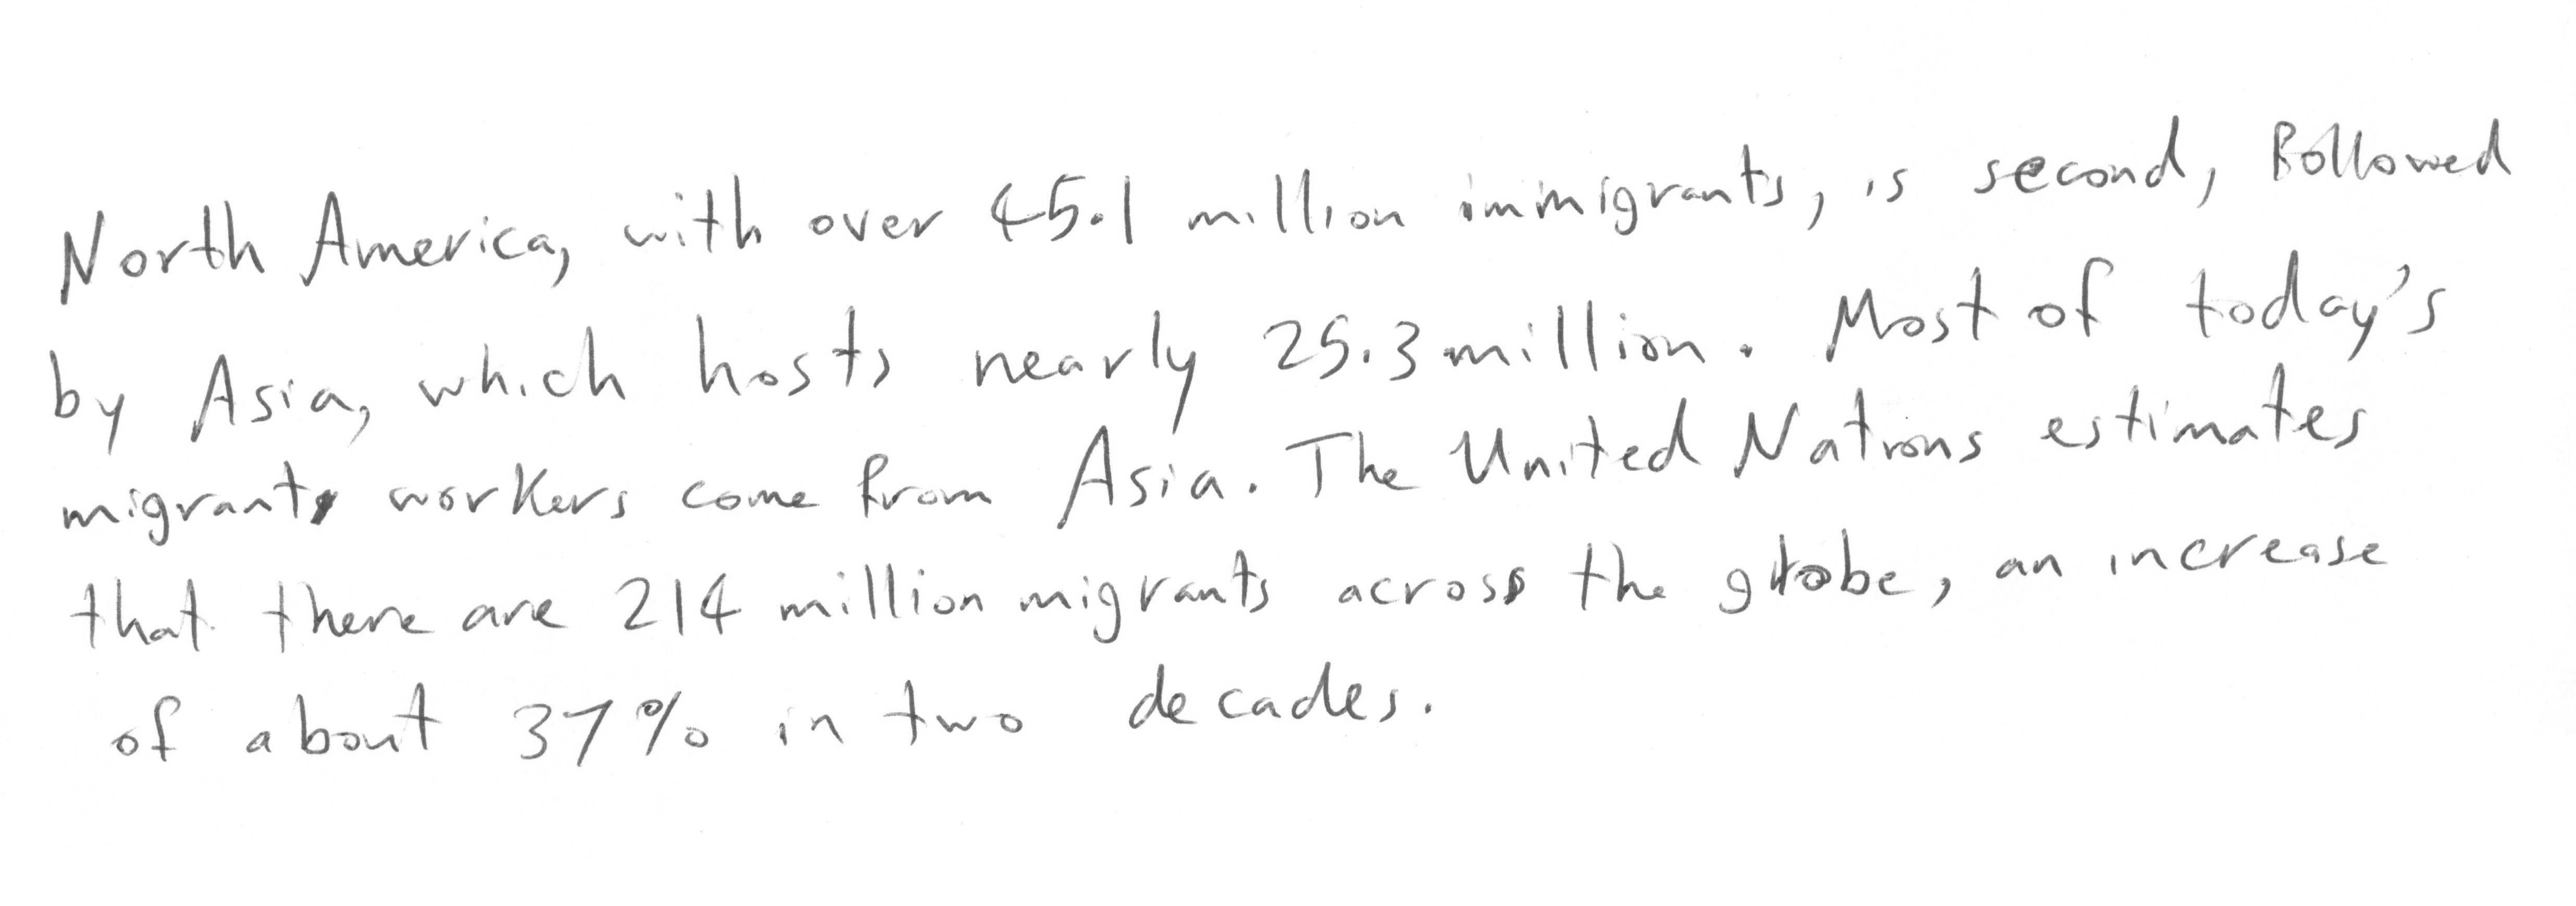 North America, with over 45.1 million immigrants, is second, followed
by Asia, which hosts nearly 25.3 million. Most of today's
migrant workers come from Asia. The United Nations estimates
that there are 214 million migrants across the globe, an increase
of about 37% in two decades.